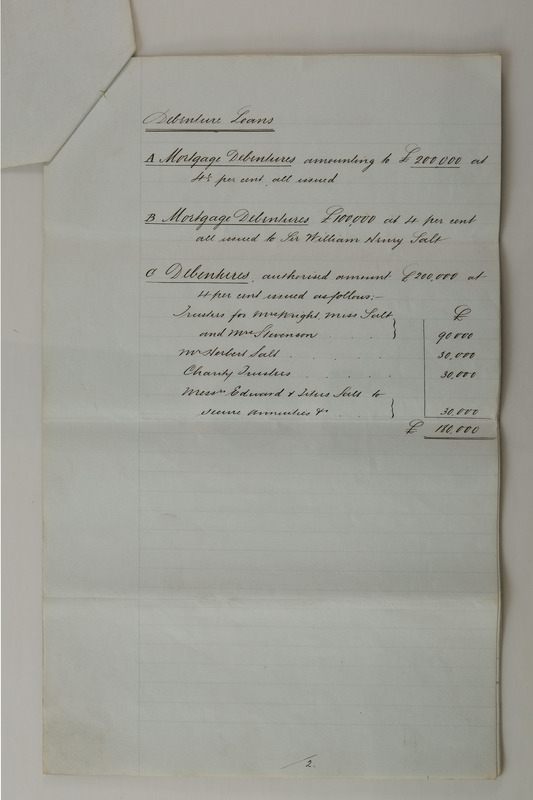 Debenture Loans
A Mortgage Debentures amounting to £200,000 at
4½ per cent all issued
B Mortgage Debentures £100,000 at 4 per cent
all issued to Sir William Henry Salt
C Debentures, authorised amount £200,000 at
4 per cent issued as follows:-
Trustees for Mrs Wright, Miss Salt £
and Mrs Stevenson . . . 90,000
Mr Herbert Salt . . . . 30,000
Charity Trustees . . . . 30,000
Messrs Edward & Titus Salt to
secure annuities &c . . 30,000
£ 180,000
2.